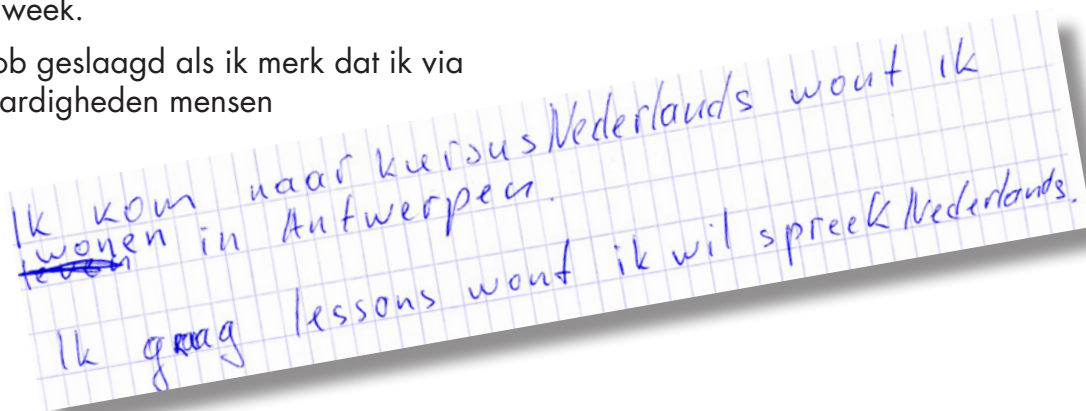 week.
ob geslaagd als ik merk dat ik via
ardigheden mensen
Ik kom naar kursus Nederlands wont ik
wonen in Antwerpen.
Ik graag lessons wont ik wil spreek Nederlands.